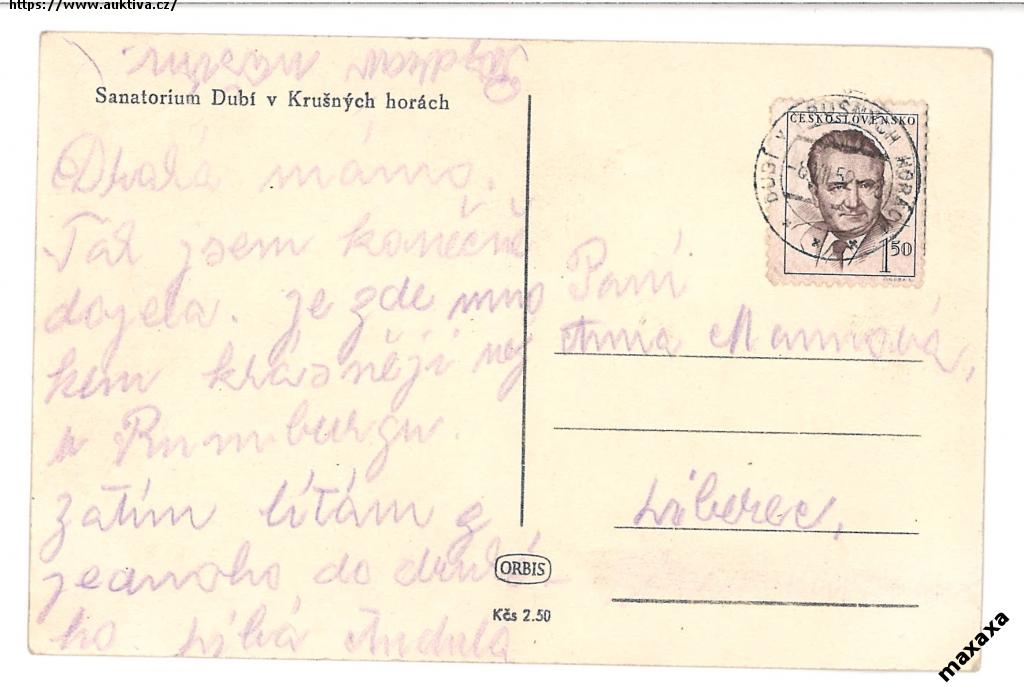 https://www.auktiva.cz/
Sanatorium Dubí v Krušných horách
Drahá mámo.
Tak jsem konečně
dojela. je gde mno
kem krásněji než
v Rumburgu.
zatím lítám z
jednoho do druhé
ho líbá Andula
ČESKOSLOVENSKO
1 50
DUBÍ V KRUŠNÝCH HORÁCH
Paní
Anna Mannová,
Liberec,
ORBIS
Kčs 2.50
maxaxa